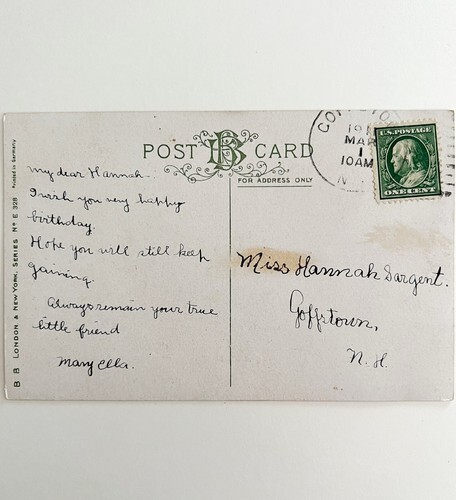 POST CARD
BB
FOR ADDRESS ONLY
My dear Hannah -
I wish you very happy
birthday.
Hope you will still keep
gaining.
Always remain your true
little friend
Mary Ella.
Miss Hannah Sargent.
Goffstown,
N. H.
MAR
1
10 AM
N
U.S. POSTAGE
ONE CENT
B B LONDON & NEW YORK. SERIES No E 328 Printed in Germany